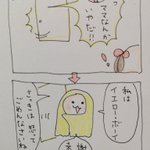 ママなんか
いやだ!!
私は
イエローボーイ
さっきは怒って
ごめんなさいね